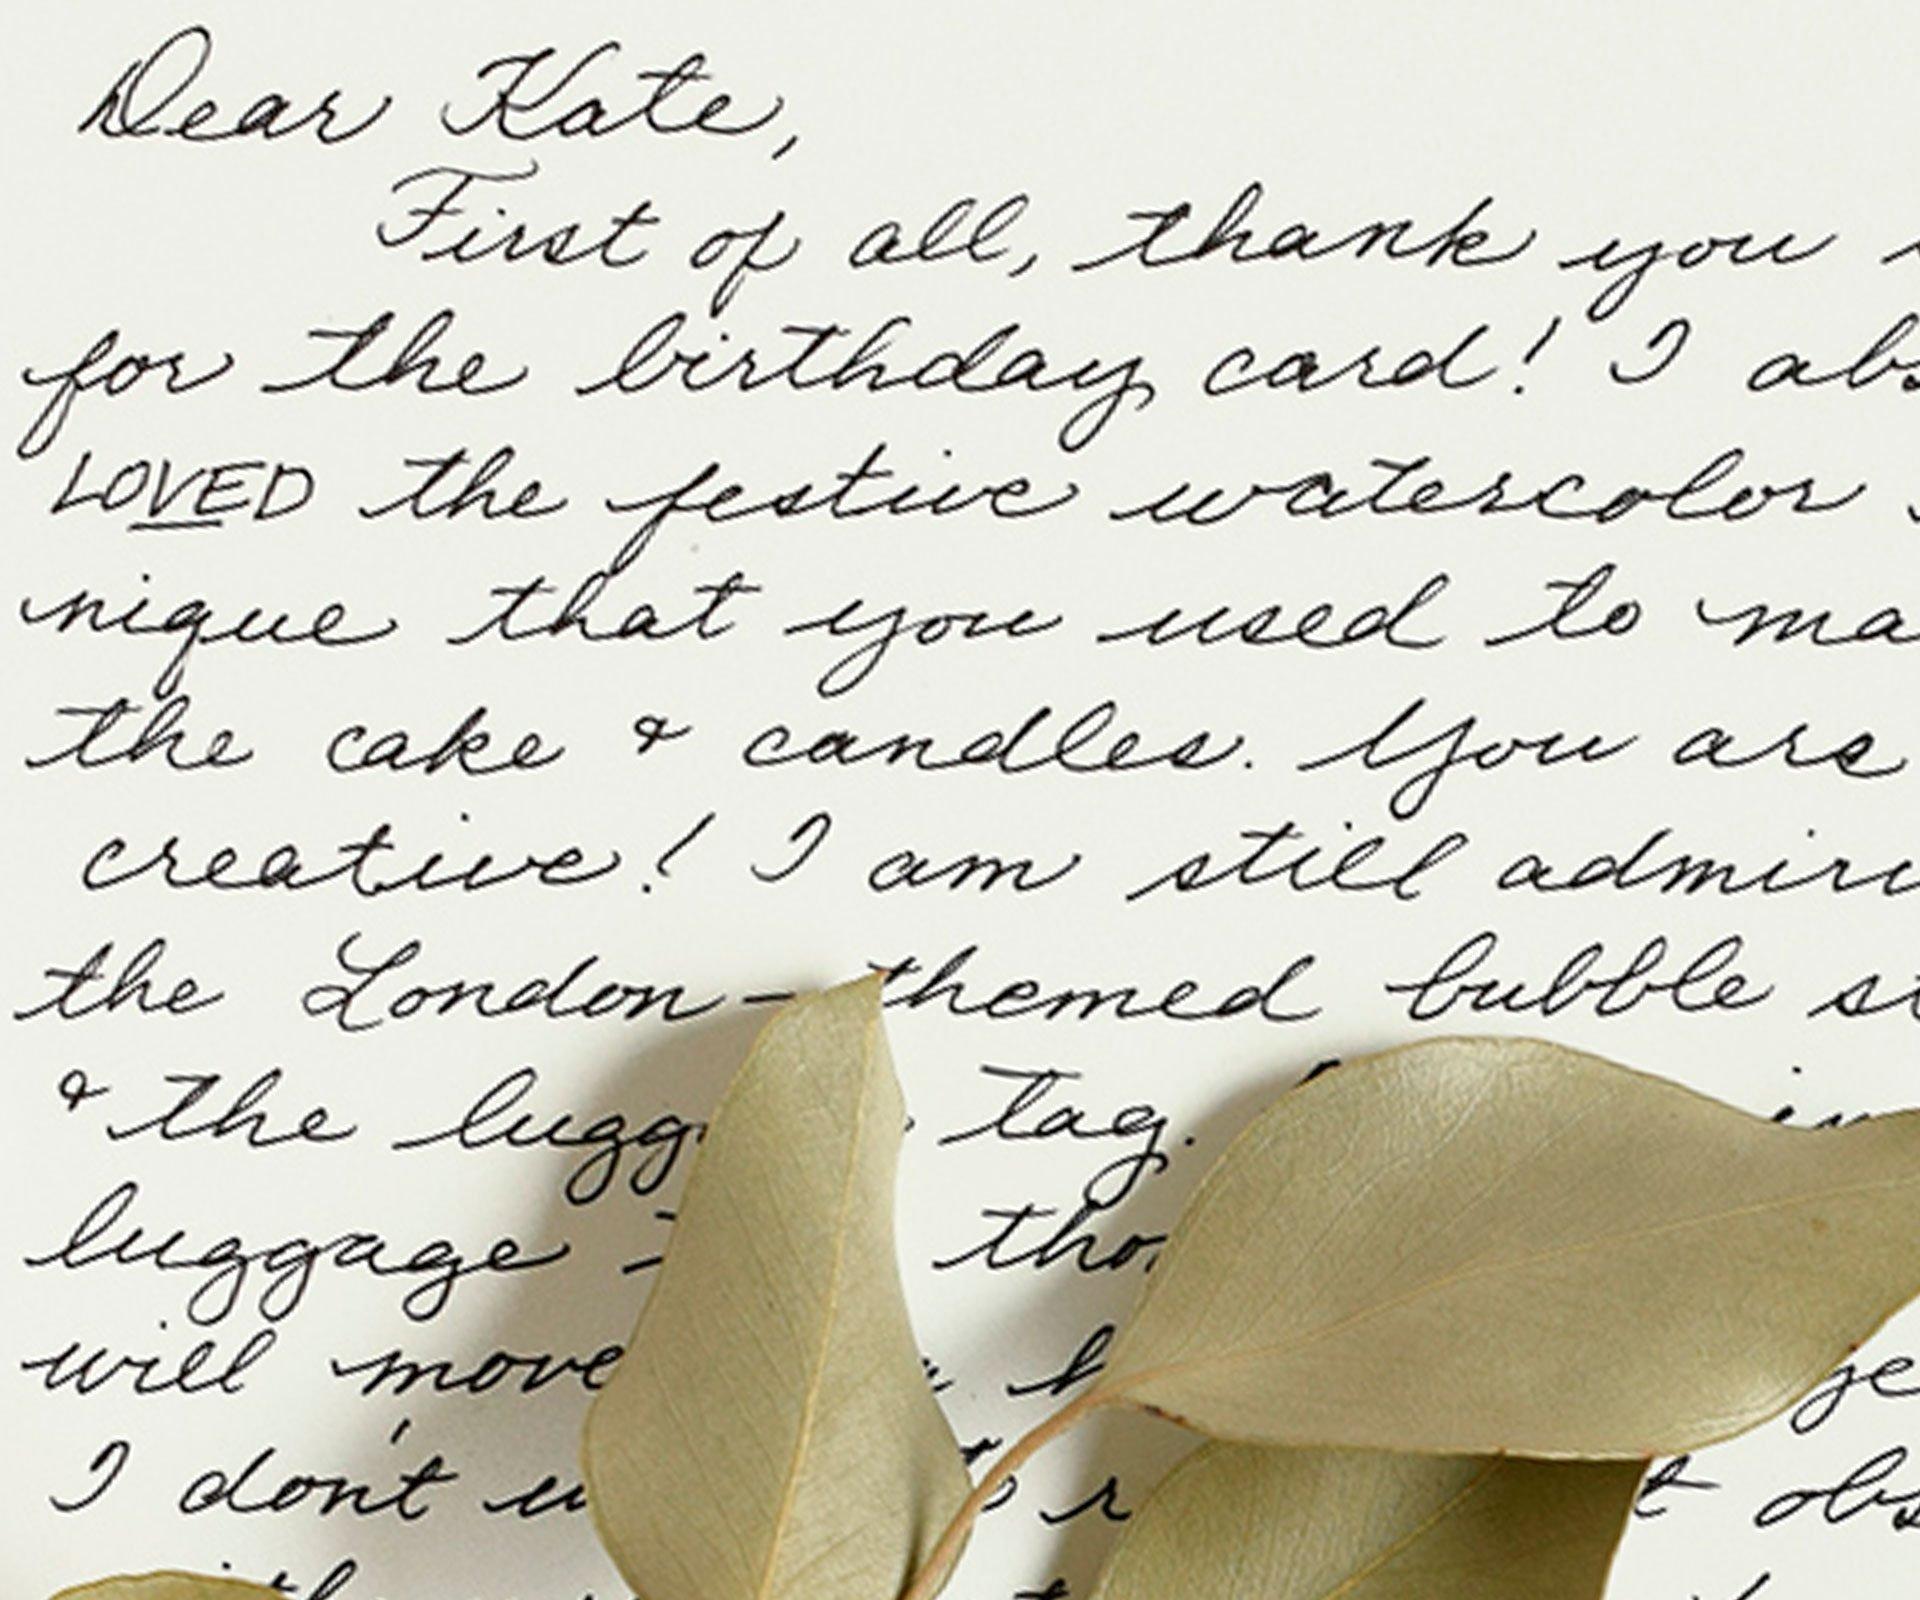 Dear Kate,
First of all, thank you
for the birthday card! I abs
LOVED the festive watercolor
nique that you used to ma
the cake & candles. You are
creative! I am still admiri
the London-themed bubble st
& the lugg tag. in
luggage tho
will move h ge
I don't w to r t obs